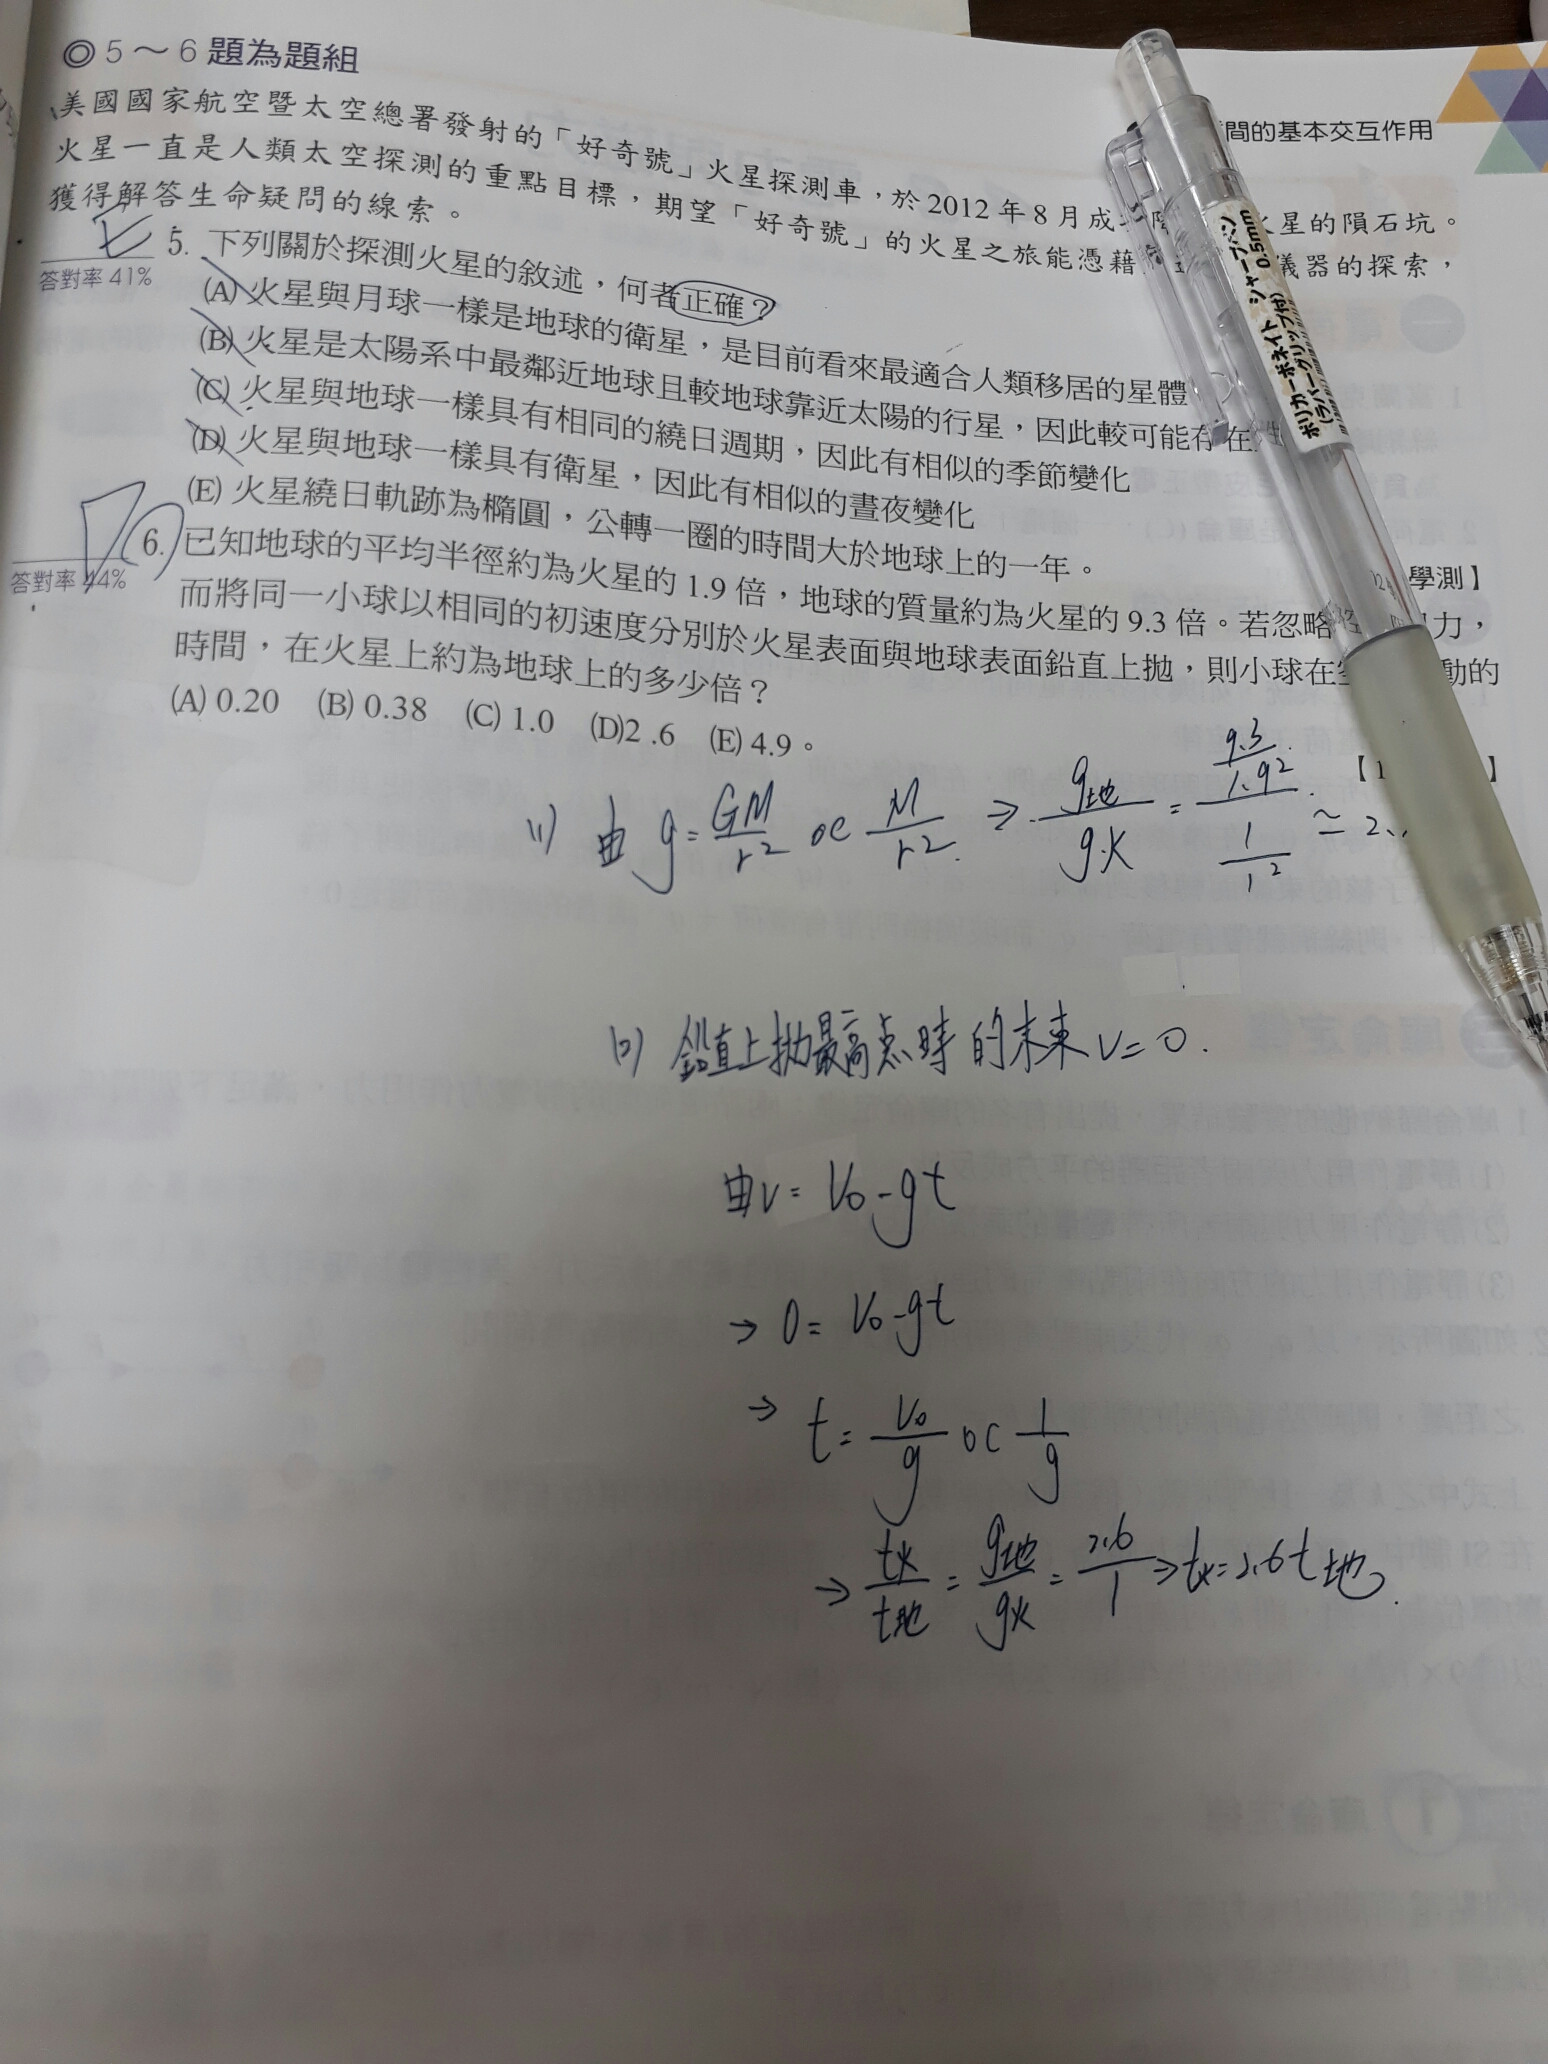 ◎5～6題為題組
間的基本交互作用
美國國家航空暨太空總署發射的「好奇號」火星探測車，於2012年8月成 火星的隕石坑。
火星一直是人類太空探測的重點目標，期望「好奇號」的火星之旅能憑藉 儀器的探索，
獲得解答生命疑問的線索。
E
答對率 41%
5. 下列關於探測火星的敘述，何者正確？
(A) 火星與月球一樣是地球的衛星，是目前看來最適合人類移居的星體
(B) 火星是太陽系中最鄰近地球且較地球靠近太陽的行星，因此較可能存在
(C) 火星與地球一樣具有相同的繞日週期，因此有相似的季節變化
(D) 火星與地球一樣具有衛星，因此有相似的晝夜變化
(E) 火星繞日軌跡為橢圓，公轉一圈的時間大於地球上的一年。
學測】
D
答對率 44%
6. 已知地球的平均半徑約為火星的 1.9 倍，地球的質量約為火星的 9.3 倍。若忽略 力，
而將同一小球以相同的初速度分別於火星表面與地球表面鉛直上拋，則小球在 動的
時間，在火星上約為地球上的多少倍？
(A) 0.20 (B) 0.38 (C) 1.0 (D)2 .6 (E) 4.9。
【1 】
(1) 由 g = GM/r² ∝ M/r² ⇒ g地/g火 = (9.3/1.9²)/(1/1²) ≃ 2.
(2) 鉛直上拋最高点時的末束 V=0.
由V = V₀-gt
→ 0 = V₀-gt
→ t = V₀/g ∝ 1/g
→ t火/t地 = g地/g火 = 2.6/1 → t火=2.6t地.
ポリカーボネイト シャープペン
(ラバーグリップ付) 0.5mm